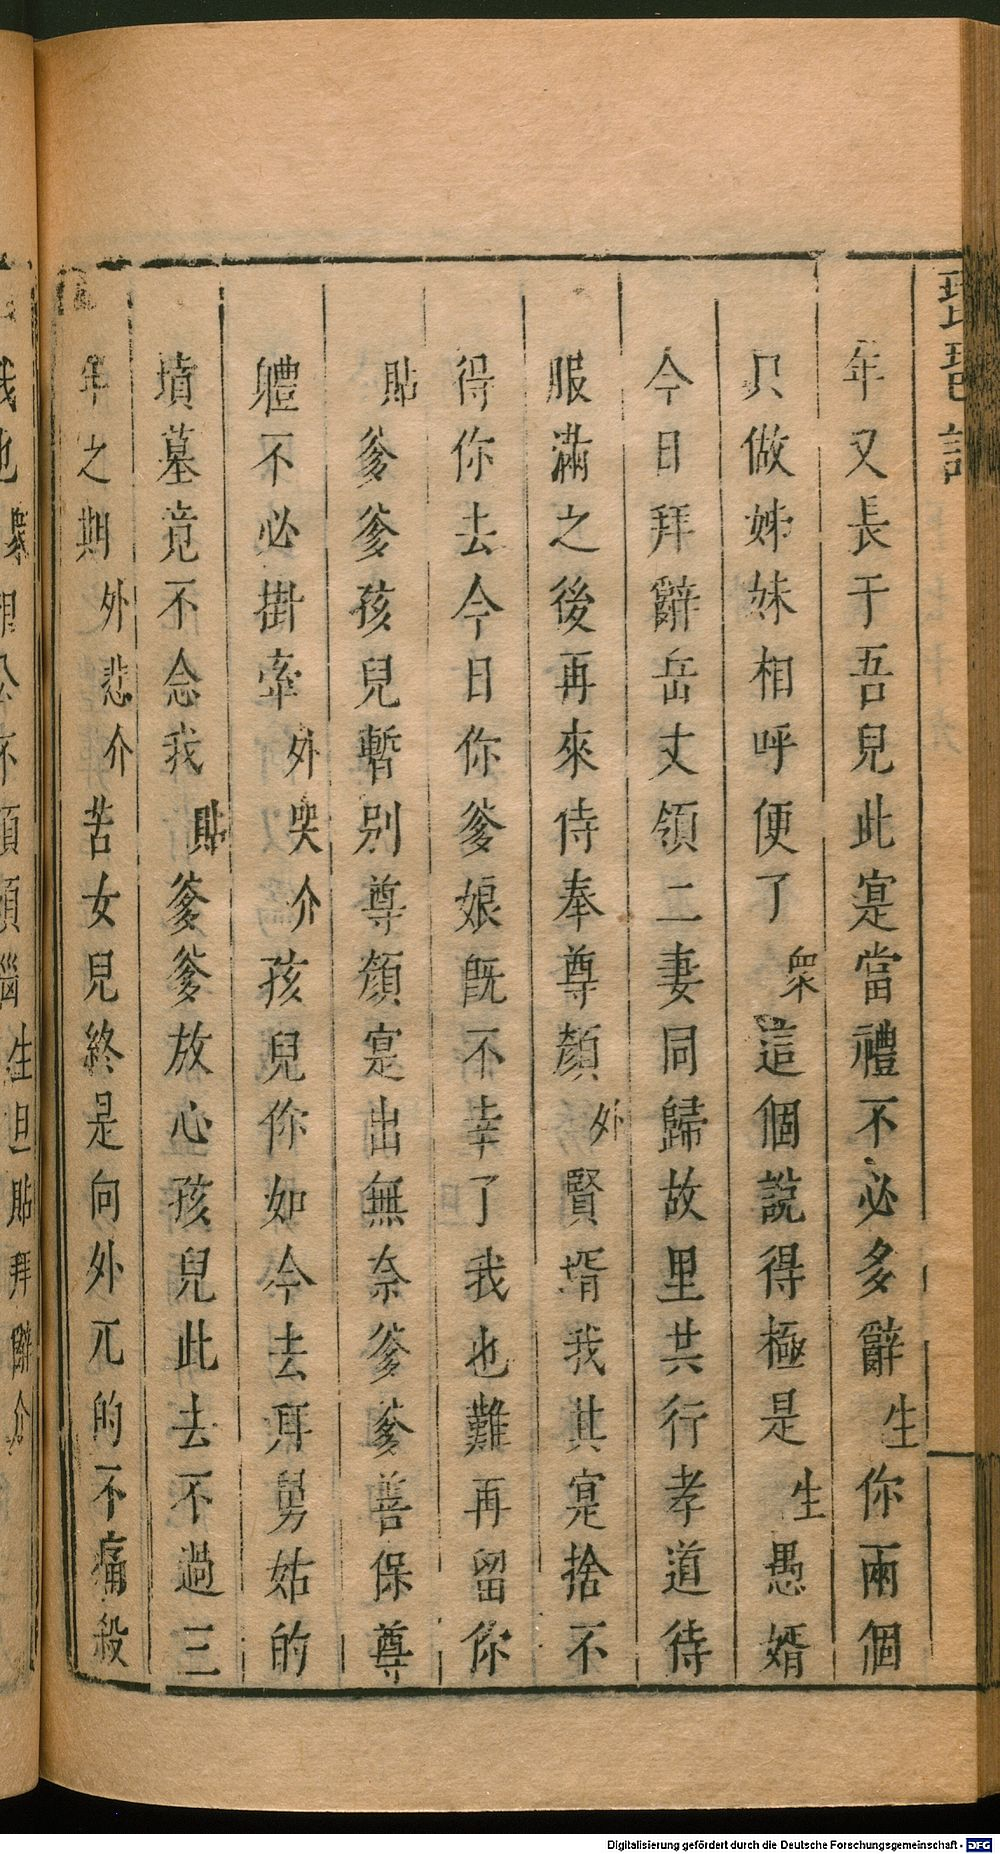 琵琶記
年又長于吾兒此寔當禮不必多辭生你兩個
只做姊妹相呼便了衆這個說得極是生愚婿
今日拜辭岳丈領二妻同歸故里共行孝道待
服滿之後再來侍奉尊顏外賢壻我其寔捨不
得你去今日你爹娘旣不幸了我也難再留你
貼爹爹孩兒暫別尊顏寔出無奈爹爹善保尊
軆不必掛牽外哭介孩兒你如今去耳舅姑的
墳墓竟不念我貼爹爹放心孩兒此去不過三
年之期外悲介苦女兒終是向外兀的不痛殺
我也衆相公不須煩惱生旦貼拜辭介
Digitalisierung gefördert durch die Deutsche Forschungsgemeinschaft - DFG